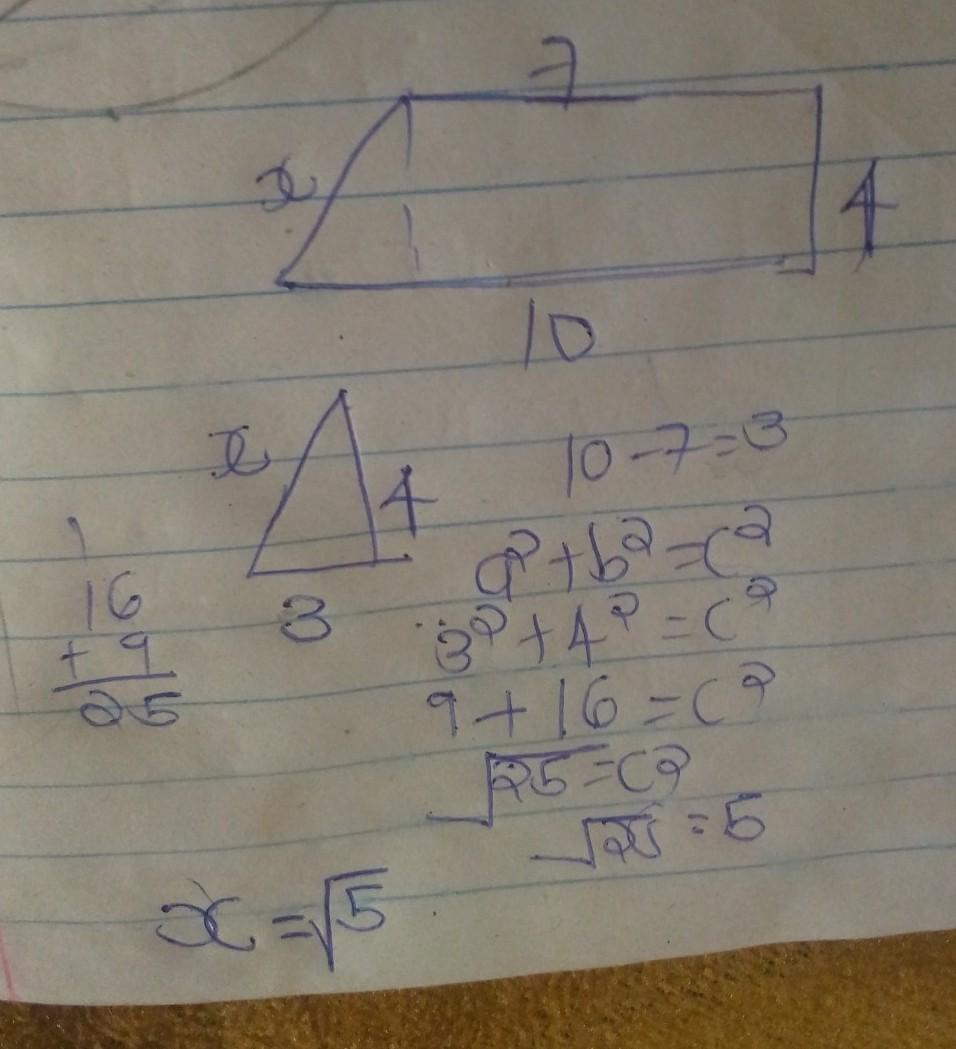 7
x
4
10
x
4
3
10-7=3
a²+b²=c²
3²+4²=c²
9+16=c²
√25=c²
√25=5
1
16
+9
25
x=√5